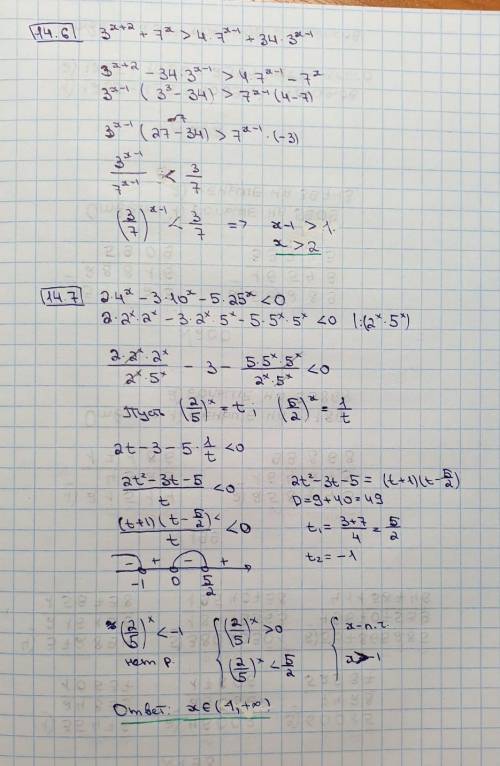 14.6 3^{x+2} + 7^x > 4·7^{x-1} + 34·3^{x-1}
3^{x+2} - 34·3^{x-1} > 4·7^{x-1} - 7^x
3^{x-1} (3^3 - 34) > 7^{x-1} (4-7)
-7
3^{x-1} (27-34) > 7^{x-1}·(-3)
3^{x-1}/7^{x-1} < 3/7
(3/7)^{x-1} < 3/7 => x-1 > 1.
x > 2
14.7 2·4^x - 3·10^x - 5·25^x < 0
2·2^x·2^x - 3·2^x·5^x - 5·5^x·5^x < 0 |:(2^x·5^x)
2·2^x·2^x/2^x·5^x - 3 - 5·5^x·5^x/2^x·5^x < 0
Пусть (2/5)^x = t, (5/2)^x = 1/t
2t - 3 - 5·1/t < 0
2t² - 3t - 5/t < 0 2t² - 3t - 5 = (t+1)(t - 5/2)
D = 9 + 40 = 49
(t+1)(t - 5/2)/t < 0 t₁ = 3+7/4 = 5/2
t₂ = -1
- + - +
-1 0 5/2
(2/5)^x < -1 { (2/5)^x > 0 { x - л.ч.
нет р. (2/5)^x < 5/2 x > -1
Ответ: x ∈ (-1, +∞)